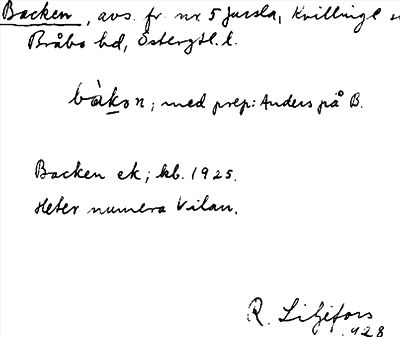 Backen, avs. fr. nr 5 Jursla, Kvillinge
Bråbo hd, Östergötl. l.
bàkon; med prep: Anders på B.
Backen ek; kb. 1925.
Heter numera Vilan.
R. Liljefors
1928